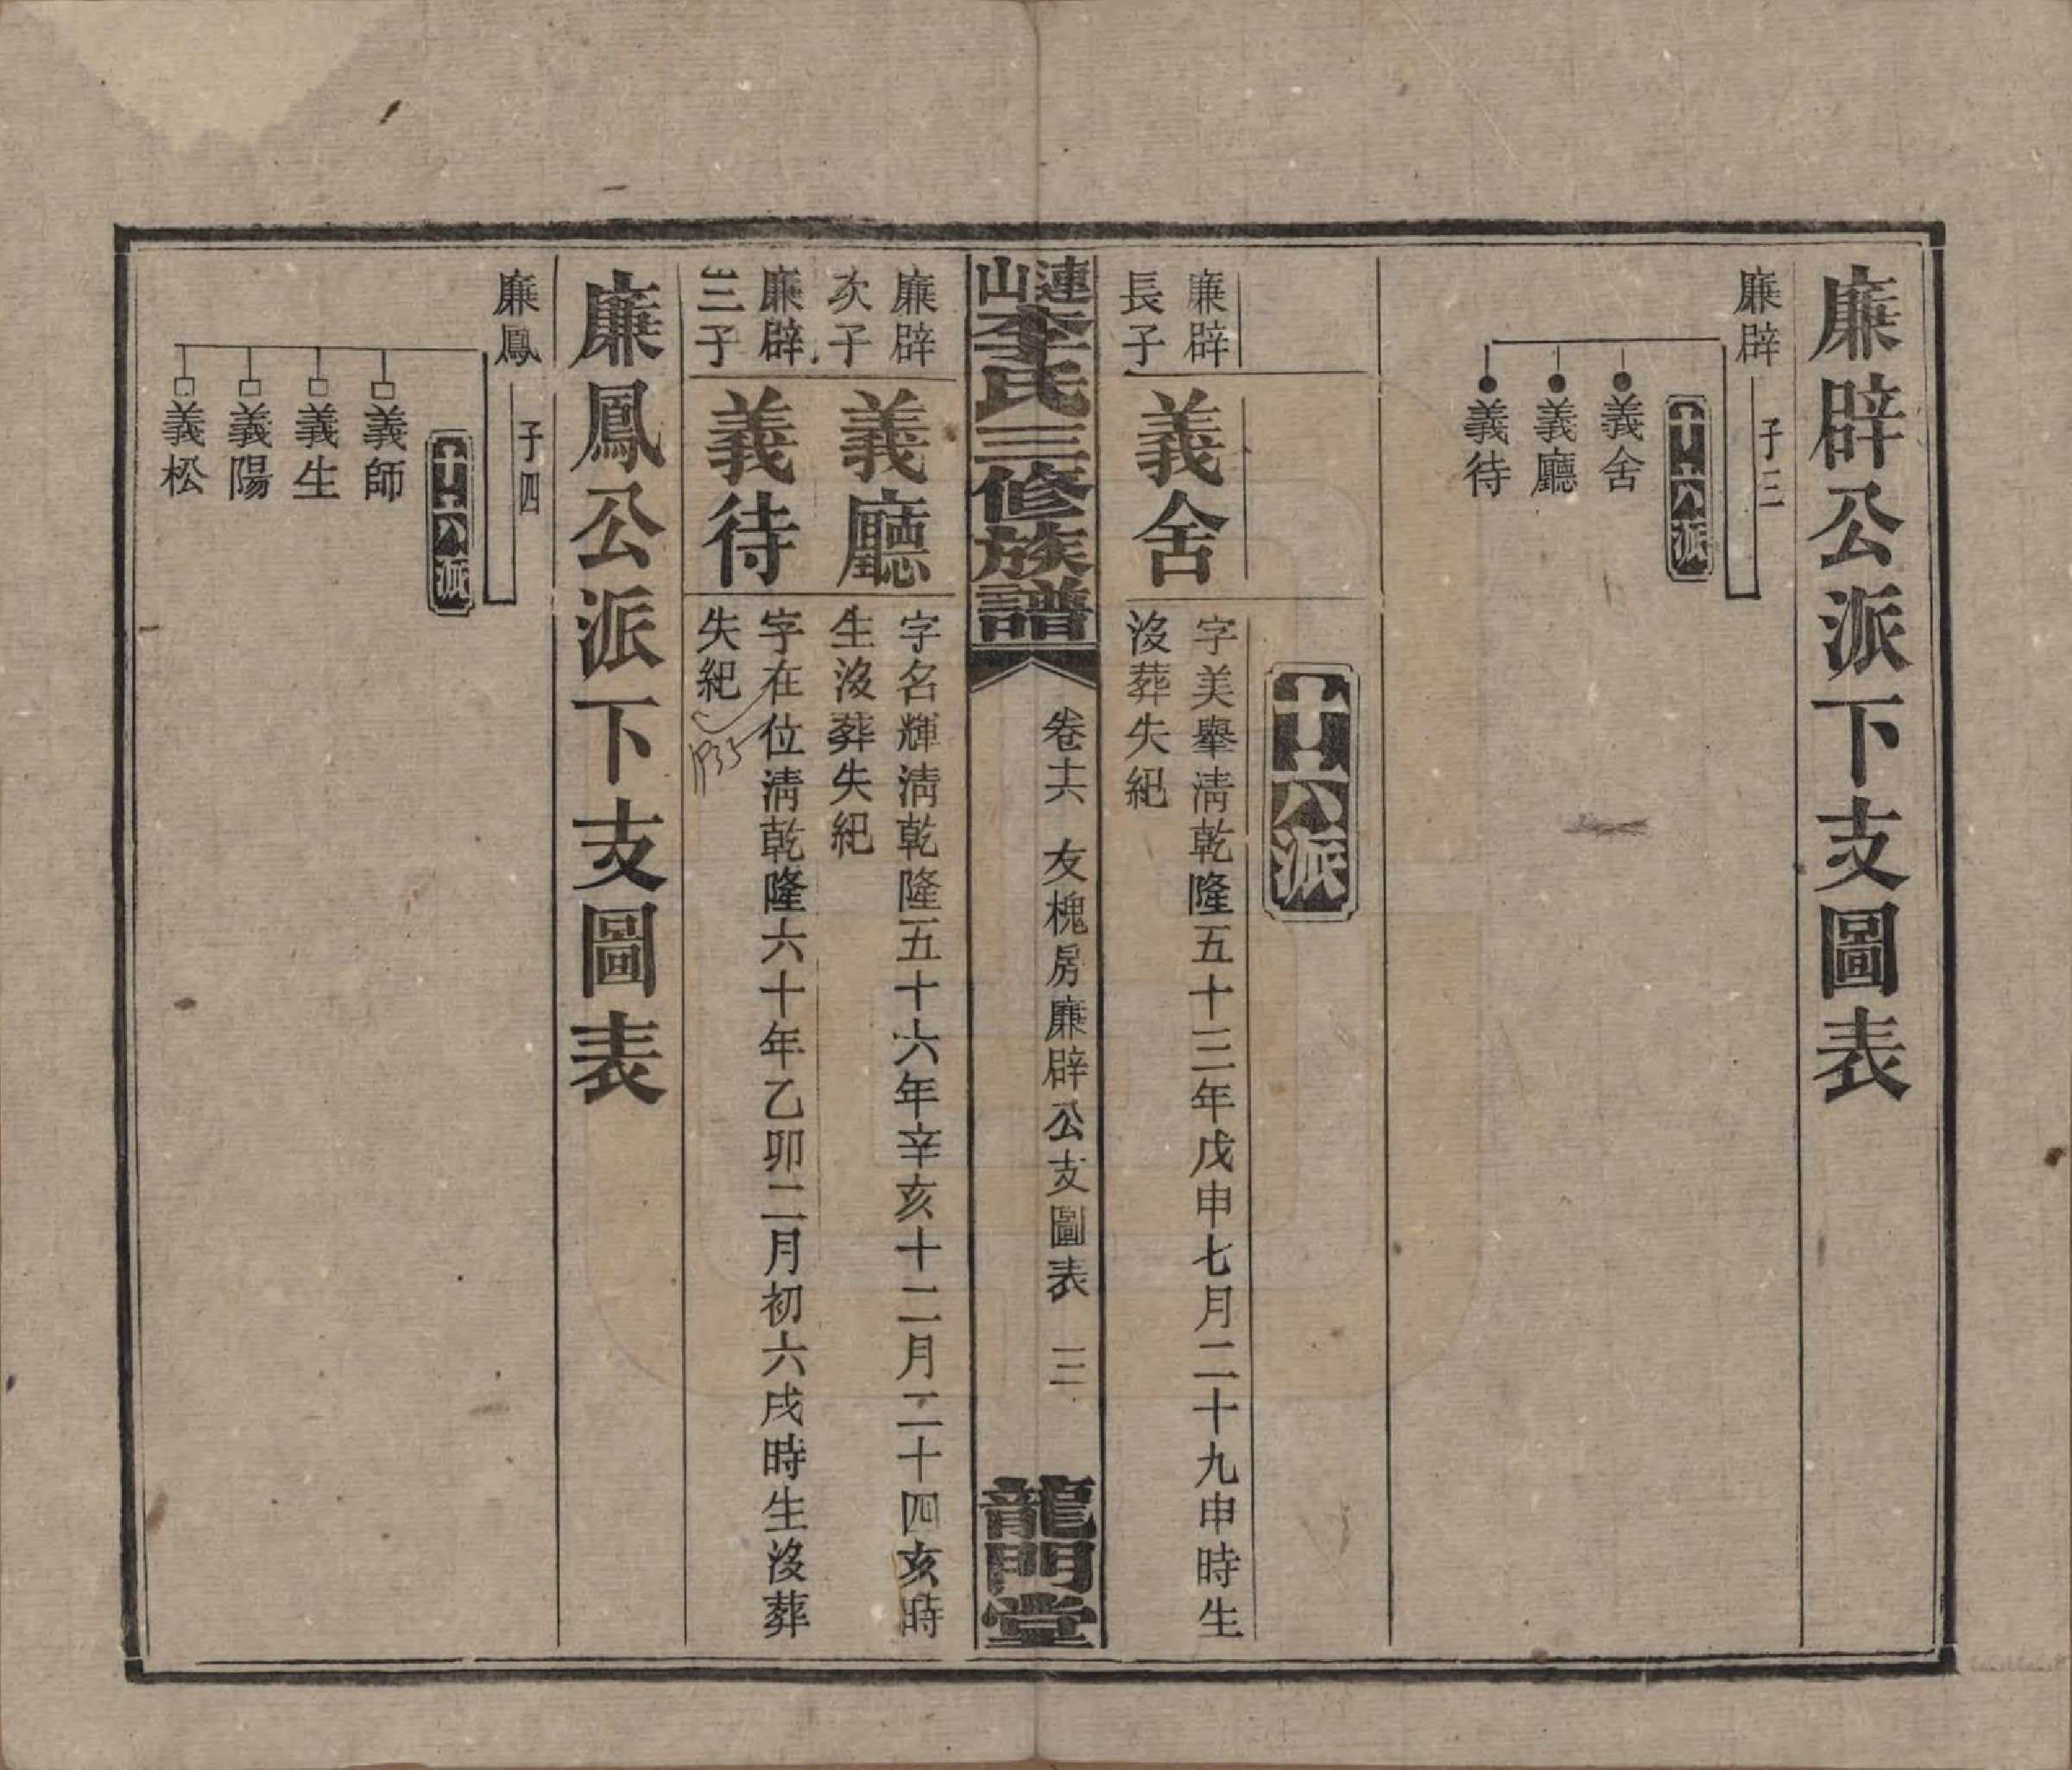 廉辟公派下支圖表
廉辟
子三
十六派
義舍
義廳
義待
十六派
廉辟
長子
義舍
字美舉淸乾隆五十三年戊申七月二十九申時生
沒葬失紀
連山李氏三修族譜
卷十六 友槐房廉辟公支圖表 三
龍門堂
廉辟
次子
義廳
字名輝淸乾隆五十六年辛亥十二月二十四亥時
生沒葬失紀
廉辟
三子
義待
字在位淸乾隆六十年乙卯二月初六戌時生沒葬
失紀
P35
廉鳳公派下支圖表
廉鳳
子四
十六派
義師
義生
義陽
義松